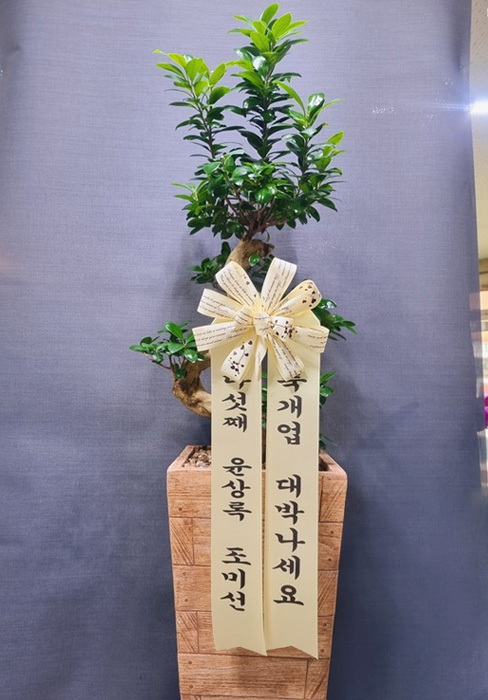 축개업 대박나세요
다섯째 윤상록 조미선